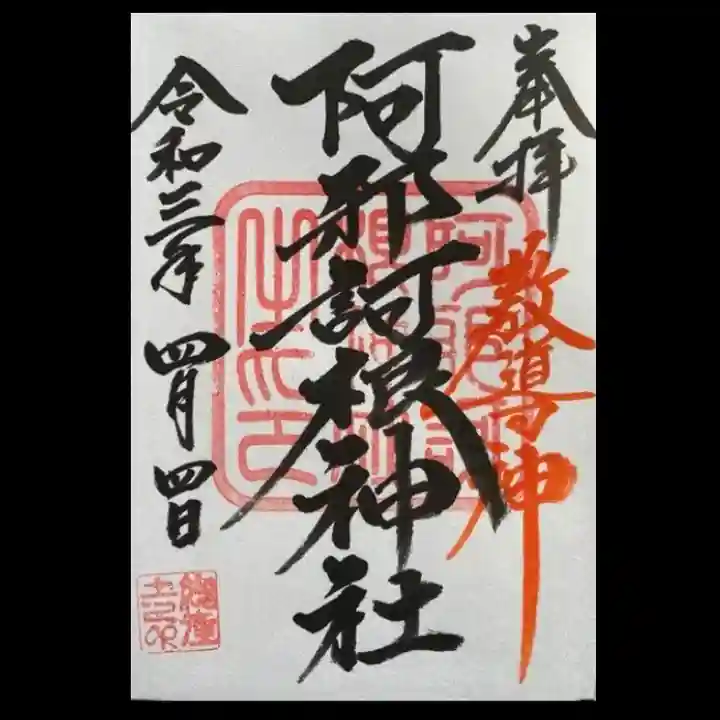 奉拝
教導神
阿邪訶根神社
令和三年 四月 四日